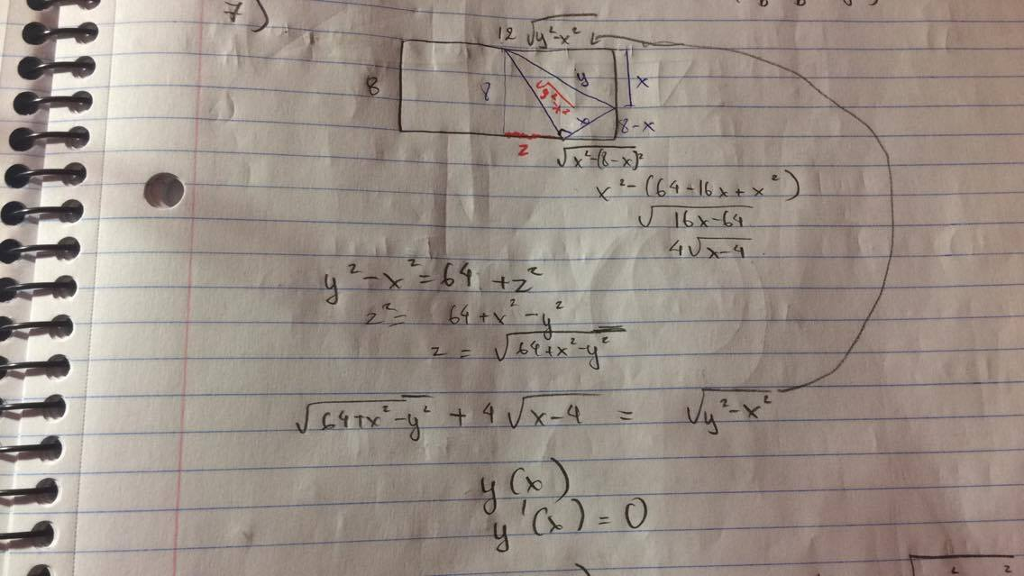 7)
12 √(y²-x²)
8
8
y
x
√(y²-x²)
x
8-x
z
√(x²-(8-x)²)
x²-(64-16x+x²)
√(16x-64)
4√(x-4)
y²-x²=64 +z²
z²= 64+x²-y²
z = √(64+x²-y²)
√(64+x²-y²) + 4√(x-4) = √(y²-x²)
y(x)
y'(x) = 0